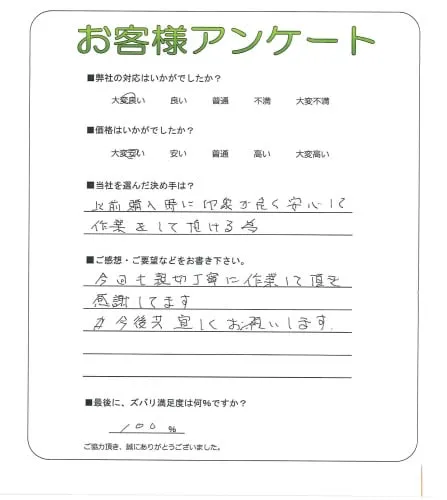 お客様アンケート
■弊社の対応はいかがでしたか？
大変良い 良い 普通 不満 大変不満
■価格はいかがでしたか？
大変安い 安い 普通 高い 大変高い
■当社を選んだ決め手は？
以前購入時に印象が良く安心して
作業をして頂ける為
■ご感想・ご要望などをお書き下さい。
今回も親切丁寧に作業して頂き
感謝してます
今後共宜しくお願いします.
■最後に、ズバリ満足度は何%ですか？
100 %
ご協力頂き、誠にありがとうございました。